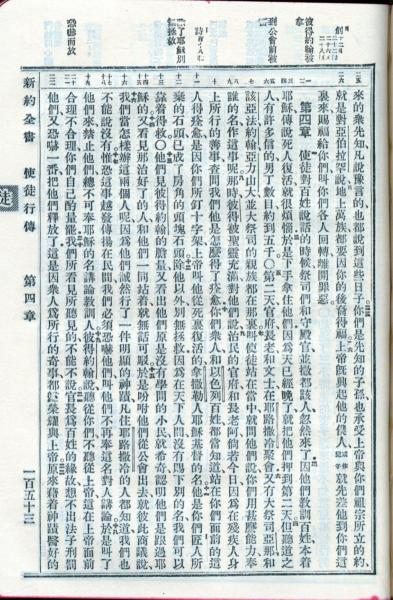 彼得約翰被拿
恐嚇而放
來的衆先知、凡說豫言的、也都說到這些日子、你們是先知的子孫、也承受上帝與你們祖宗所立的約、
就是對亞伯拉罕說、地上萬族都要因你的後裔得福、上帝既興起他的聖人、或作兒子就先差他到你們這
裏來賜福給你們、叫你們各人回轉離開罪惡、
第四章 使徒對百姓說話的時候、祭司們和守殿官、並撒都該人、忽然來了、因他們教訓百姓、本着
耶穌傳說死人復活、就很煩惱、於是下手拿住他們、因爲天已經晚了、就把他們押到第二天、但聽道之
人、有許多信的、男丁數目約到五千○第二天、官府長老和文士、在耶路撒冷聚會、又有大祭司亞那、和
該亞法約翰亞力山大、並大祭司的親族、都在那裏、叫使徒站在當中、就問他們說、你們用甚麽能力、奉
誰的名、作這事呢、那時彼得被聖靈充滿、對他們說、治民的官府和長老阿、倘若今日、因爲在殘疾人身
上所行的善事、查問我們他是怎麽得了痊愈、你們衆人和以色列百姓都當知道、站在你們面前的這
人得痊愈、是因你們所釘十字架、上帝叫他從死裏復活的拿撒勒人耶穌基督的名、他是你們匠人所
棄的石頭、已成了房角的頭塊石頭、除他以外、別無拯救、因爲在天下人間、沒有賜下別的名、我們可以
靠着得救○他們見彼得約翰的膽量、又看出他們原是沒有學問的小民、就希奇、認明他們是跟過耶
穌的、又看見那治好了的人、和他們一同站着、就無話可駁、於是吩咐他們從公會出去、就彼此商議說、
我們當怎樣辦這兩個人呢、因爲他們誠然行了一件明顯的神蹟、凡住耶路撒冷的人都知道、我們也
不能說沒有、惟恐這事越發傳揚在民間、我們必須恐嚇他們、叫他們不再奉這名對人講論、於是叫了
他們來、禁止他們、總不可奉耶穌的名講論教訓人、彼得約翰說、聽從你們、不聽從上帝、這在上帝面前
合理不合理、你們自己酌量罷、我們所看見所聽見的、不能不說、官長爲百姓的緣故、想不出法子刑罰
他們、又恐嚇一番、把他們釋放了、這是因衆人爲所行的奇事、都歸榮耀與上帝、原來藉着神蹟醫好的
新約全書 使徒行傳 第四章 一百五十三
徒